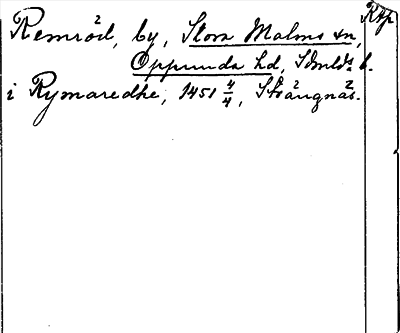 Remröd, by, Stora Malms sn, Rtp
Oppunda hd, Sdmlds b.
i Rymaredhe, 1451 4/4, Strängnäs.